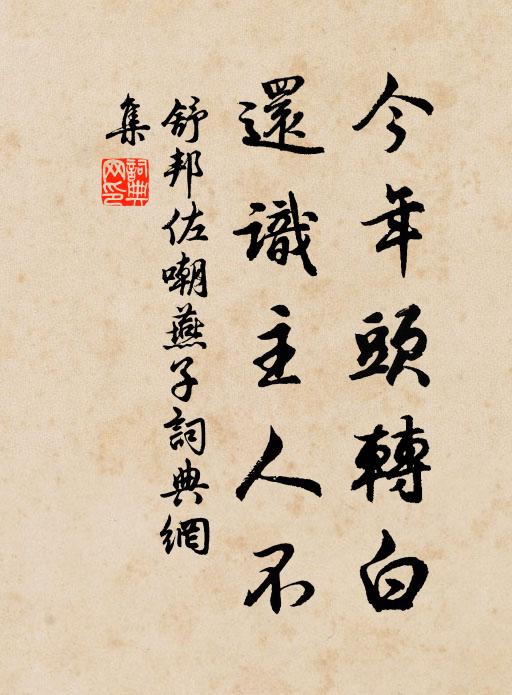 今年頭轉白
還識主人不
舒邦佐嘲燕子詞典網
集
詞典網印